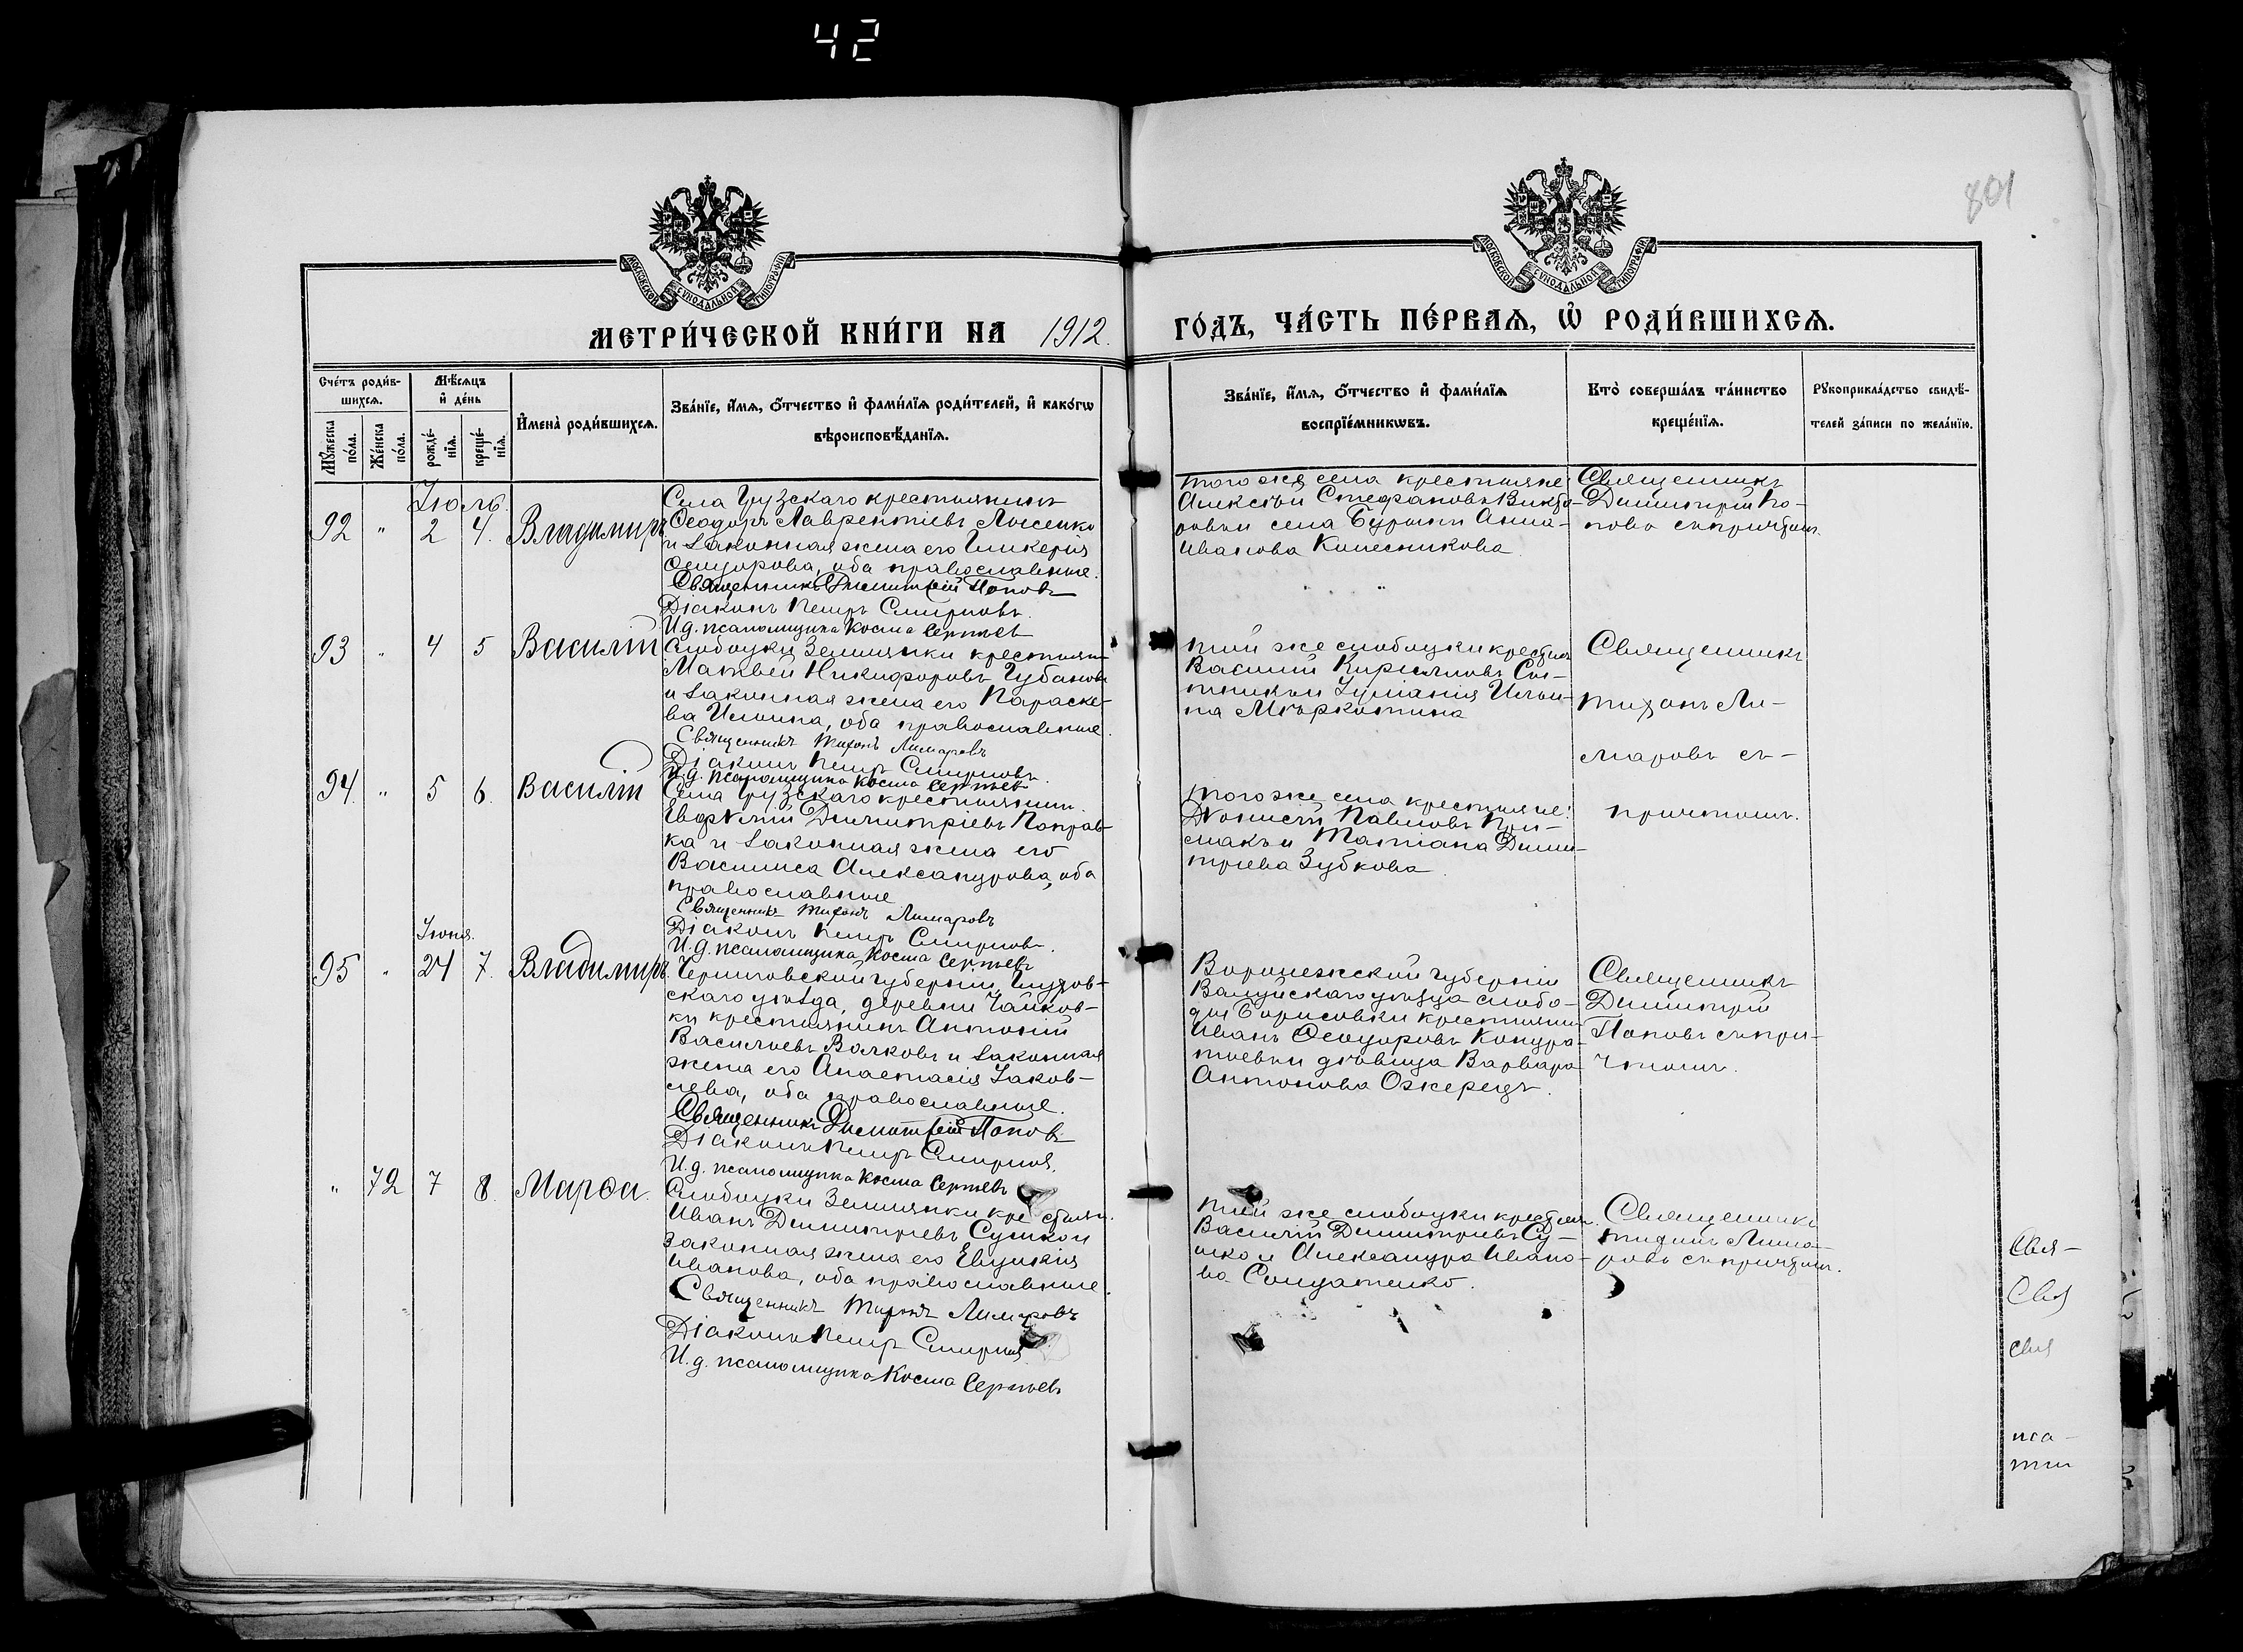 42
801
МОСКОВСКОЙ СѴНОДАЛЬНОЙ ТИПОГРАФІИ
МОСКОВСКОЙ СѴНОДАЛЬНОЙ ТИПОГРАФІИ
МЕТРИ́ЧЕСКОЙ КНИ́ГИ НА 1912. ГО́ДЪ, ЧА́СТЬ ПЕ́РВАѦ, Ѽ РОДИ́ВШИХСѦ.
Сче́тъ роди́в-
шихсѧ.
Мѣ́сѧцъ
и҆ де́нь
Мꙋ́жеска
по́ла.
Же́нска
по́ла.
рожде́-
нїѧ.
креще́-
нїѧ.
И҆мена̀ роди́вшихсѧ.
Зва́нїе, и҆́мѧ, ѻ҆́тчество и҆ фами́лїѧ роди́телей, и҆ како́гѡ
вѣроисповѣ́данїѧ.
Зва́нїе, и҆́мѧ, ѻ҆́тчество и҆ фами́лїѧ
воспрїе́мникѡвъ.
Кто̀ соверша́лъ та́инство
креще́нїѧ.
Рꙋкоприкла́дство свидѣ́-
телей за́писи по жела́нїю.
Іюль.
92 " 2 4. Владимиръ
Села Грузскаго крестьянинъ
Ѳеодоръ Лаврентіевъ Лысенко
и законная жена его Гликерія
Ѳеодорова, оба православные.
Священникъ Димитрій Поповъ
Діаконъ Петръ Смирновъ.
И.д. псаломщика Косма Сергѣевъ
того же села крестьяне:
Алексѣй Стефановъ
села Бурыни Анна
Иванова Колесникова
Священникъ
Димитрій По-
повъ съ причтом.
93 " 4 5 Василій
Слободки Землянки крестьян.
Матвей Никифоровъ Губановъ
и законная жена его Параске-
ва Ильина, оба православные.
Священникъ Тихонъ Лимаровъ
Діаконъ Петръ Смирновъ.
И.д. псаломщика Косма Сергѣевъ
той же слободки крестьян
Василій Кирилловъ Сот-
никъ и Іуліанія Ильи-
на
Священникъ
Тихонъ Ли-
маровъ съ-
причтомъ.
94. " 5 6. Василій
Села Грузскаго крестьянин.
Димитріевъ Поправ-
ка и законная жена его
Василиса Александрова, оба
православные
Священникъ Тихонъ Лимаровъ
Діаконъ Петръ Смирновъ.
И.д. псаломщика Косма Сергѣевъ
того же села крестьяне:
Діонисій Павловъ При-
макъ и Татіана Дими-
тріева Зубкова.
Іюня.
95 " 24 7. Владимиръ.
Черниговской губерніи, Глухов-
скаго уѣзда, деревни Чайков-
ки крестьянинъ Антоній
Васильевъ Волковъ и законная
жена его Анастасія Іаков-
лева, оба православные.
Священникъ Димитрій Поповъ
Діаконъ Петръ Смирнов.
И.д. псаломщика Косма Сергѣевъ
Воронежской губерніи
Валуйскаго уѣзда слобо-
ды Борисовки крестьянин
Иванъ Ѳеодоровъ Кондра-
тьевъ и дѣвица Варвара
Антонова Ожередъ.
Священникъ
Димитрій
Поповъ съ при-
чтомъ.
" 72 7 8. Марѳа.
Слободки Землянки крестьян.
Иванъ Димитріевъ Сушко и
законная жена его Евдокія
Иванова, оба православные.
Священникъ Тихонъ Лимаровъ
Діаконъ Петръ Смирнов.
И.д. псаломщика Косма Сергѣевъ
той же слободки крестьян.
Василій Димитріевъ Су-
шко и Александра Ивано-
ва Солдатенко.
Священникъ
Тихонъ Лима-
ровъ съ причтом.
Свя-
Свя
Свя
пса-